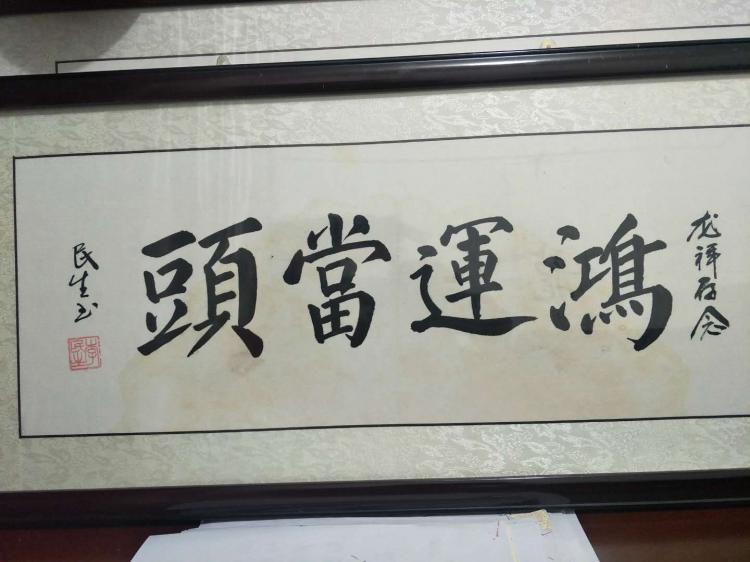 龙祥存念
鴻運當頭
民生书